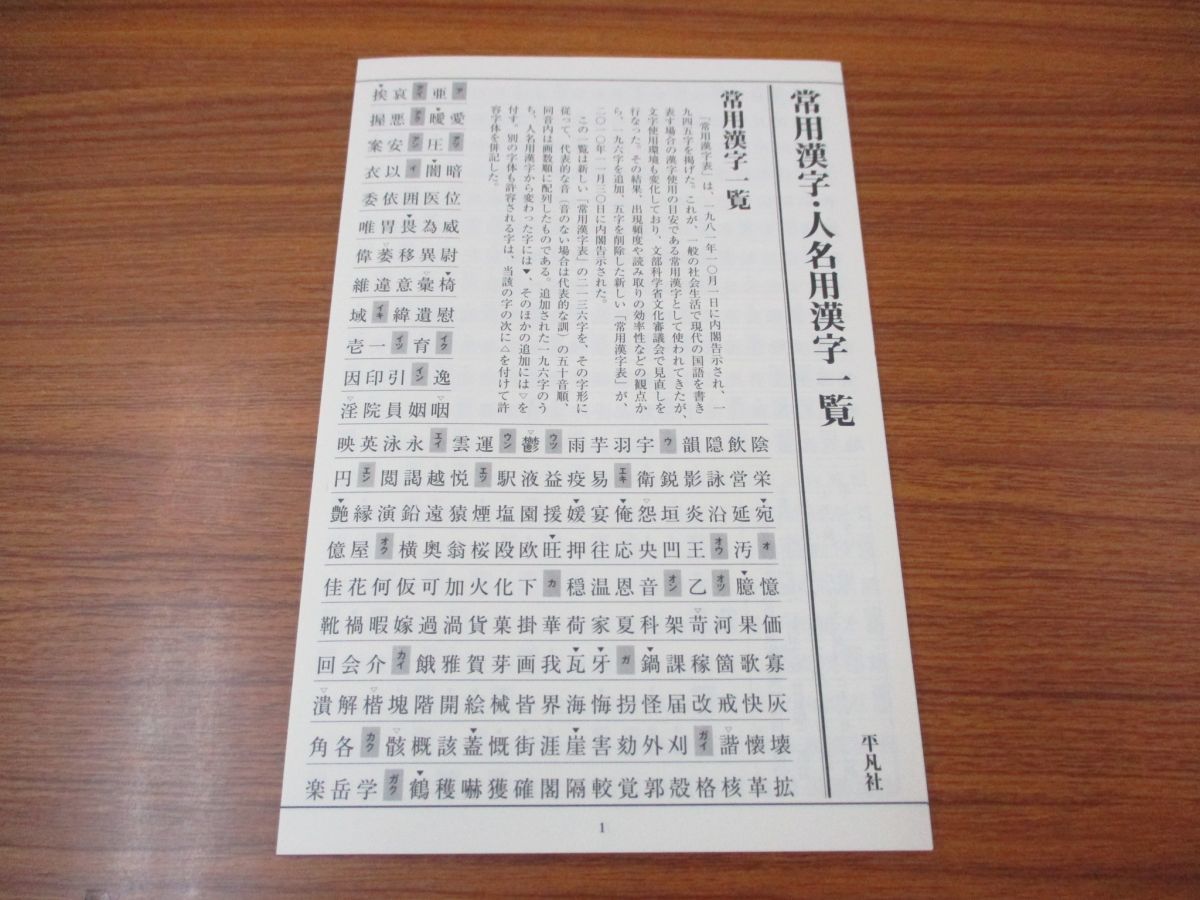 常用漢字・人名用漢字一覧
平凡社
常用漢字一覧
「常用漢字表」は、一九八一年一〇月一日に内閣告示され、一
九四五字を掲げた。これが、一般の社会生活で現代の国語を書き
表す場合の漢字使用の目安である常用漢字として使われてきたが、
文字使用環境も変化しており、文部科学省文化審議会で見直しを
行なった。その結果、出現頻度や読み取りの効率性などの観点か
ら、一九六字を追加、五字を削除した新しい「常用漢字表」が、
二〇一〇年一一月三〇日に内閣告示された。
この一覧は新しい「常用漢字表」の二一三六字を、その字形に
従って、代表的な音（音のない場合は代表的な訓）の五十音順、
同音内は画数順に配列したものである。追加された一九六字のう
ち、人名用漢字から変わった字には▼、そのほかの追加には▽を
付す。別の字体も許容される字は、当該の字の次に△を付けて許
容字体を併記した。
ア亜アイ哀▼挨
愛▼曖アク悪握
アツ圧アン安案
暗▼闇イ以衣
位医囲依委
威為▼畏胃唯
尉異移▽萎偉
▼椅▽彙意違維
慰遺緯イキ域
イク育イツ一壱
逸イン引印因
▽咽姻員院▽淫
陰飲隠韻ウ宇羽芋雨ウツ▽鬱ウン運雲エイ永泳英映
栄営詠影鋭衛エキ易疫益液駅エツ悦越謁閲エン円
▼宛延沿炎垣▽怨▼俺宴▼媛援園塩煙猿遠鉛演縁▼艶
オ汚オウ王凹央応往押▼旺欧殴桜翁奥横オク屋億
憶▼臆オツ乙オン音恩温穏カ下化火加可仮何花佳
価果河▽苛架科夏家荷華菓掛貨渦過嫁暇禍靴
寡歌箇稼課▼鍋ガ▼牙▼瓦我画芽賀雅餓カイ介会回
灰快戒改届怪拐悔海界皆械絵開階塊▽楷解▽潰
壊懐▽諧ガイ刈外劾害▼崖涯街慨▼蓋該概▽骸カク各角
拡革核格殻郭覚較隔閣確獲嚇穫▼鶴ガク学岳楽
1